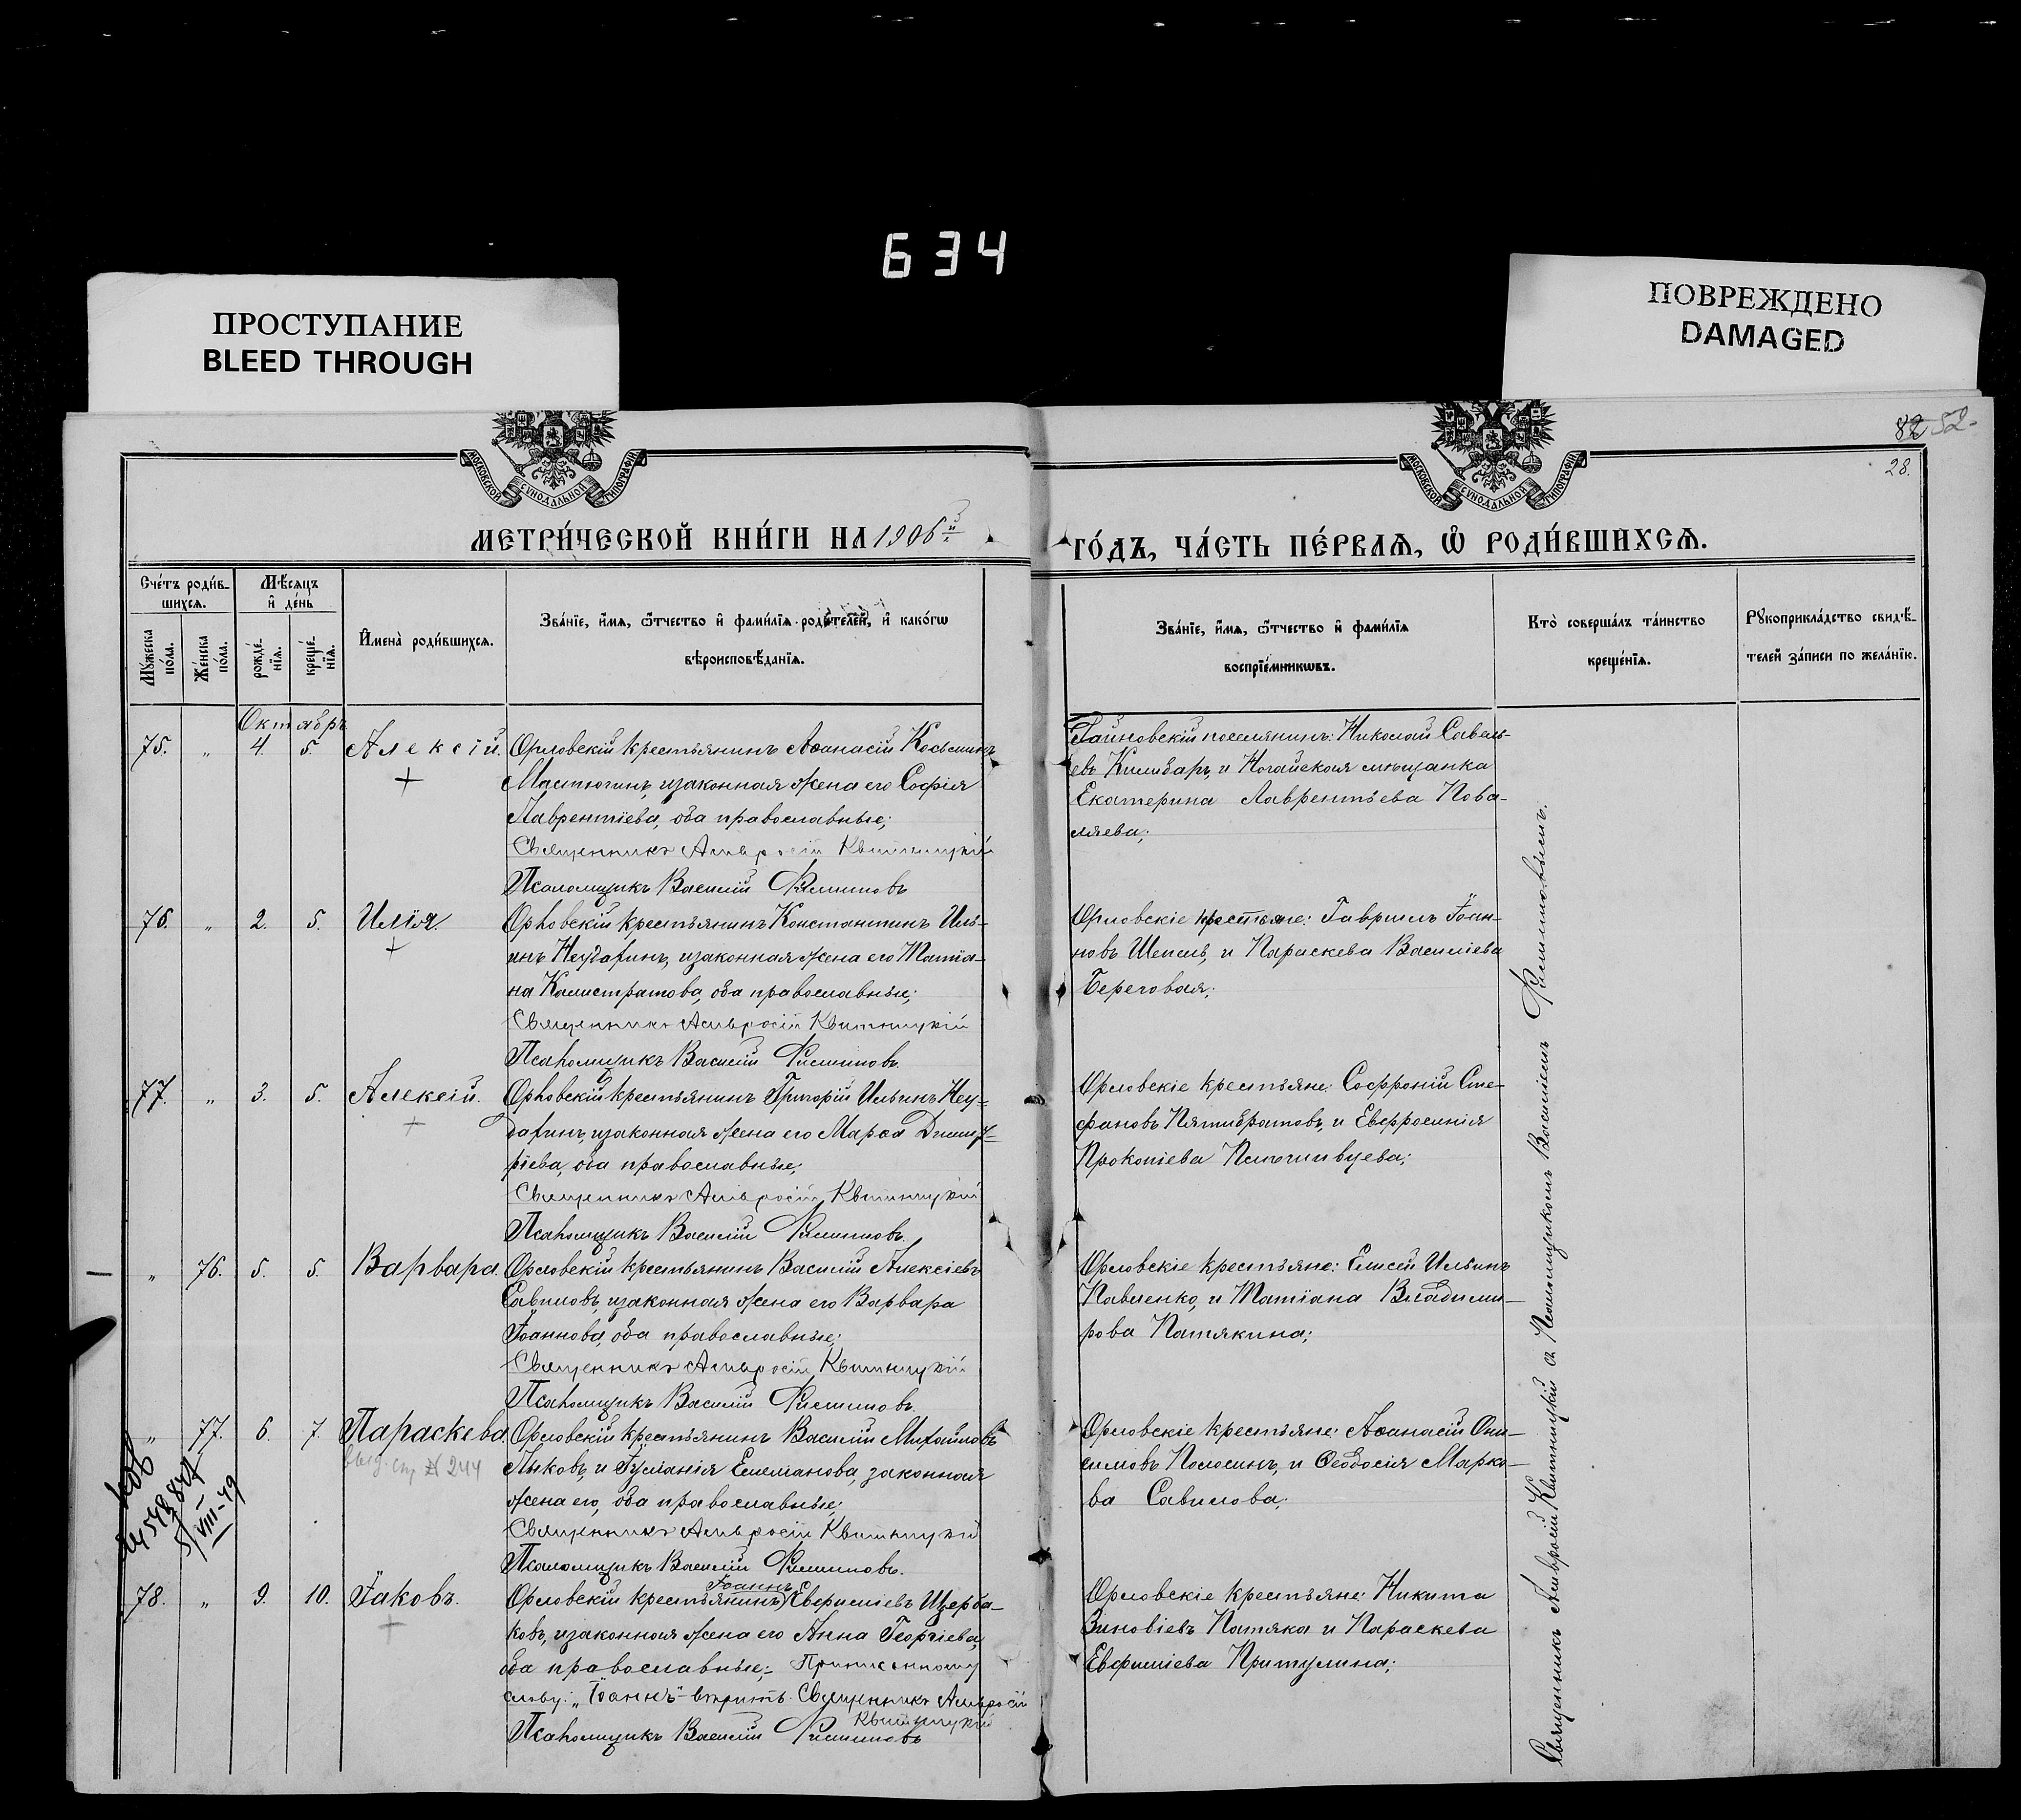 634
ПРОСТУПАНИЕ
BLEED THROUGH
ПОВРЕЖДЕНО
DAMAGED
82 52.
28.
МОСКОВСКОЙ СѴНОДАЛЬНОЙ ТИПОГРАФІИ
МОСКОВСКОЙ СѴНОДАЛЬНОЙ ТИПОГРАФІИ
МЕТРИ́ЧЕСКОЙ КНИ́ГИ НА 1906й
ГО́ДЪ, ЧА́СТЬ ПЕ́РВАѦ, Ѽ РОДИ́ВШИХСѦ.
Сче́тъ роди́в-
шихсѧ.
Мꙋ́жеска по́ла.
Же́нска по́ла.
Мѣ́сѧцъ
и҆ де́нь
рожде́-
нїѧ.
креще́-
нїѧ.
И҆мена̀ роди́вшихсѧ.
Зва́нїе, и҆́мѧ, ѻ҆́тчество и҆ фами́лїѧ роди́телей, и҆ како́гѡ
вѣроисповѣ́данїѧ.
Зва́нїе, и҆́мѧ, ѻ҆́тчество и҆ фами́лїѧ
воспрїе́мникѡвъ.
Кто̀ соверша́лъ та́инство
креще́нїѧ.
Рꙋкоприкла́дство свидѣ́-
телей за́писи по жела́нїю.
Октябрь
75. " 4. 5. Алексій. Орловскій крестьянинъ Аѳанасій Косьминъ
Мастюгинъ, и законная жена его Софія
Лаврентіева, оба православные;
Священникъ Амвросій Квитницкій
Псаломщикъ Василій Филиповъ
Николай Савель-
евъ и Ногайская мѣщанка
Екатерина Лаврентьева Пова-
ляева;
76. " 2. 5. Илія. Орловскій крестьянинъ Константинъ Иль-
инъ и законная жена его Татіа-
на Калистратова, оба православные;
Священникъ Амвросій Квитницкій
Псаломщикъ Василій Филиповъ.
Орловскіе крестьяне: Гавріилъ Іоан-
новъ Шепель, и Параскева Василіева
Береговая;
77. " 3. 5. Алексій. Орловскій крестьянинъ Григорій Ильинъ
и законная жена его Марѳа Димит-
ріева, оба православные;
Священникъ Амвросій Квитницкій
Псаломщикъ Василій Филиповъ.
Орловскіе крестьяне: Софроній Сте-
фановъ Пятибратовъ, и Евфросинія
Прокопіева
" 76. 5. 5. Варвара. Орловскій крестьянинъ Василій Алексіевъ
Савиловъ, и законная жена его Варвара
Іоаннова, оба православные;
Священникъ Амвросій Квитницкій
Псаломщикъ Василій Филиповъ.
Орловскіе крестьяне: Елисей Ильинъ
Павленко, и Татіана Владими-
рова Патякина;
" 77. 6. 7. Параскева. Орловскій крестьянинъ Василій Михайловъ
Лыковъ, и Іуліанія Емеліанова, законная
жена его, оба православные;
Священникъ Амвросій Квитницкій
Псаломщикъ Василій Филиповъ.
№ 244
VIII-49
Орловскіе крестьяне: Аѳанасій Они-
симовъ Полосинъ, и Ѳеодосія Марко-
ва Савилова;
78. " 9. 10. Іаковъ. Орловскій крестьянинъ Іоаннъ Евфиміевъ Щерба-
ковъ, и законная жена его Анна Георгіева,
оба православные; Приписанному
слову: „Іоаннъ" вѣрить. Священникъ Амвросій
Квитницкій
Псаломщикъ Василій Филиповъ
Орловскіе крестьяне: Никита
Зиновіевъ Патяка и Параскева
Евфиміева Притулина;
Священникъ Амвросій Квитницкій съ Псаломщикомъ Василіемъ Филиповымъ.